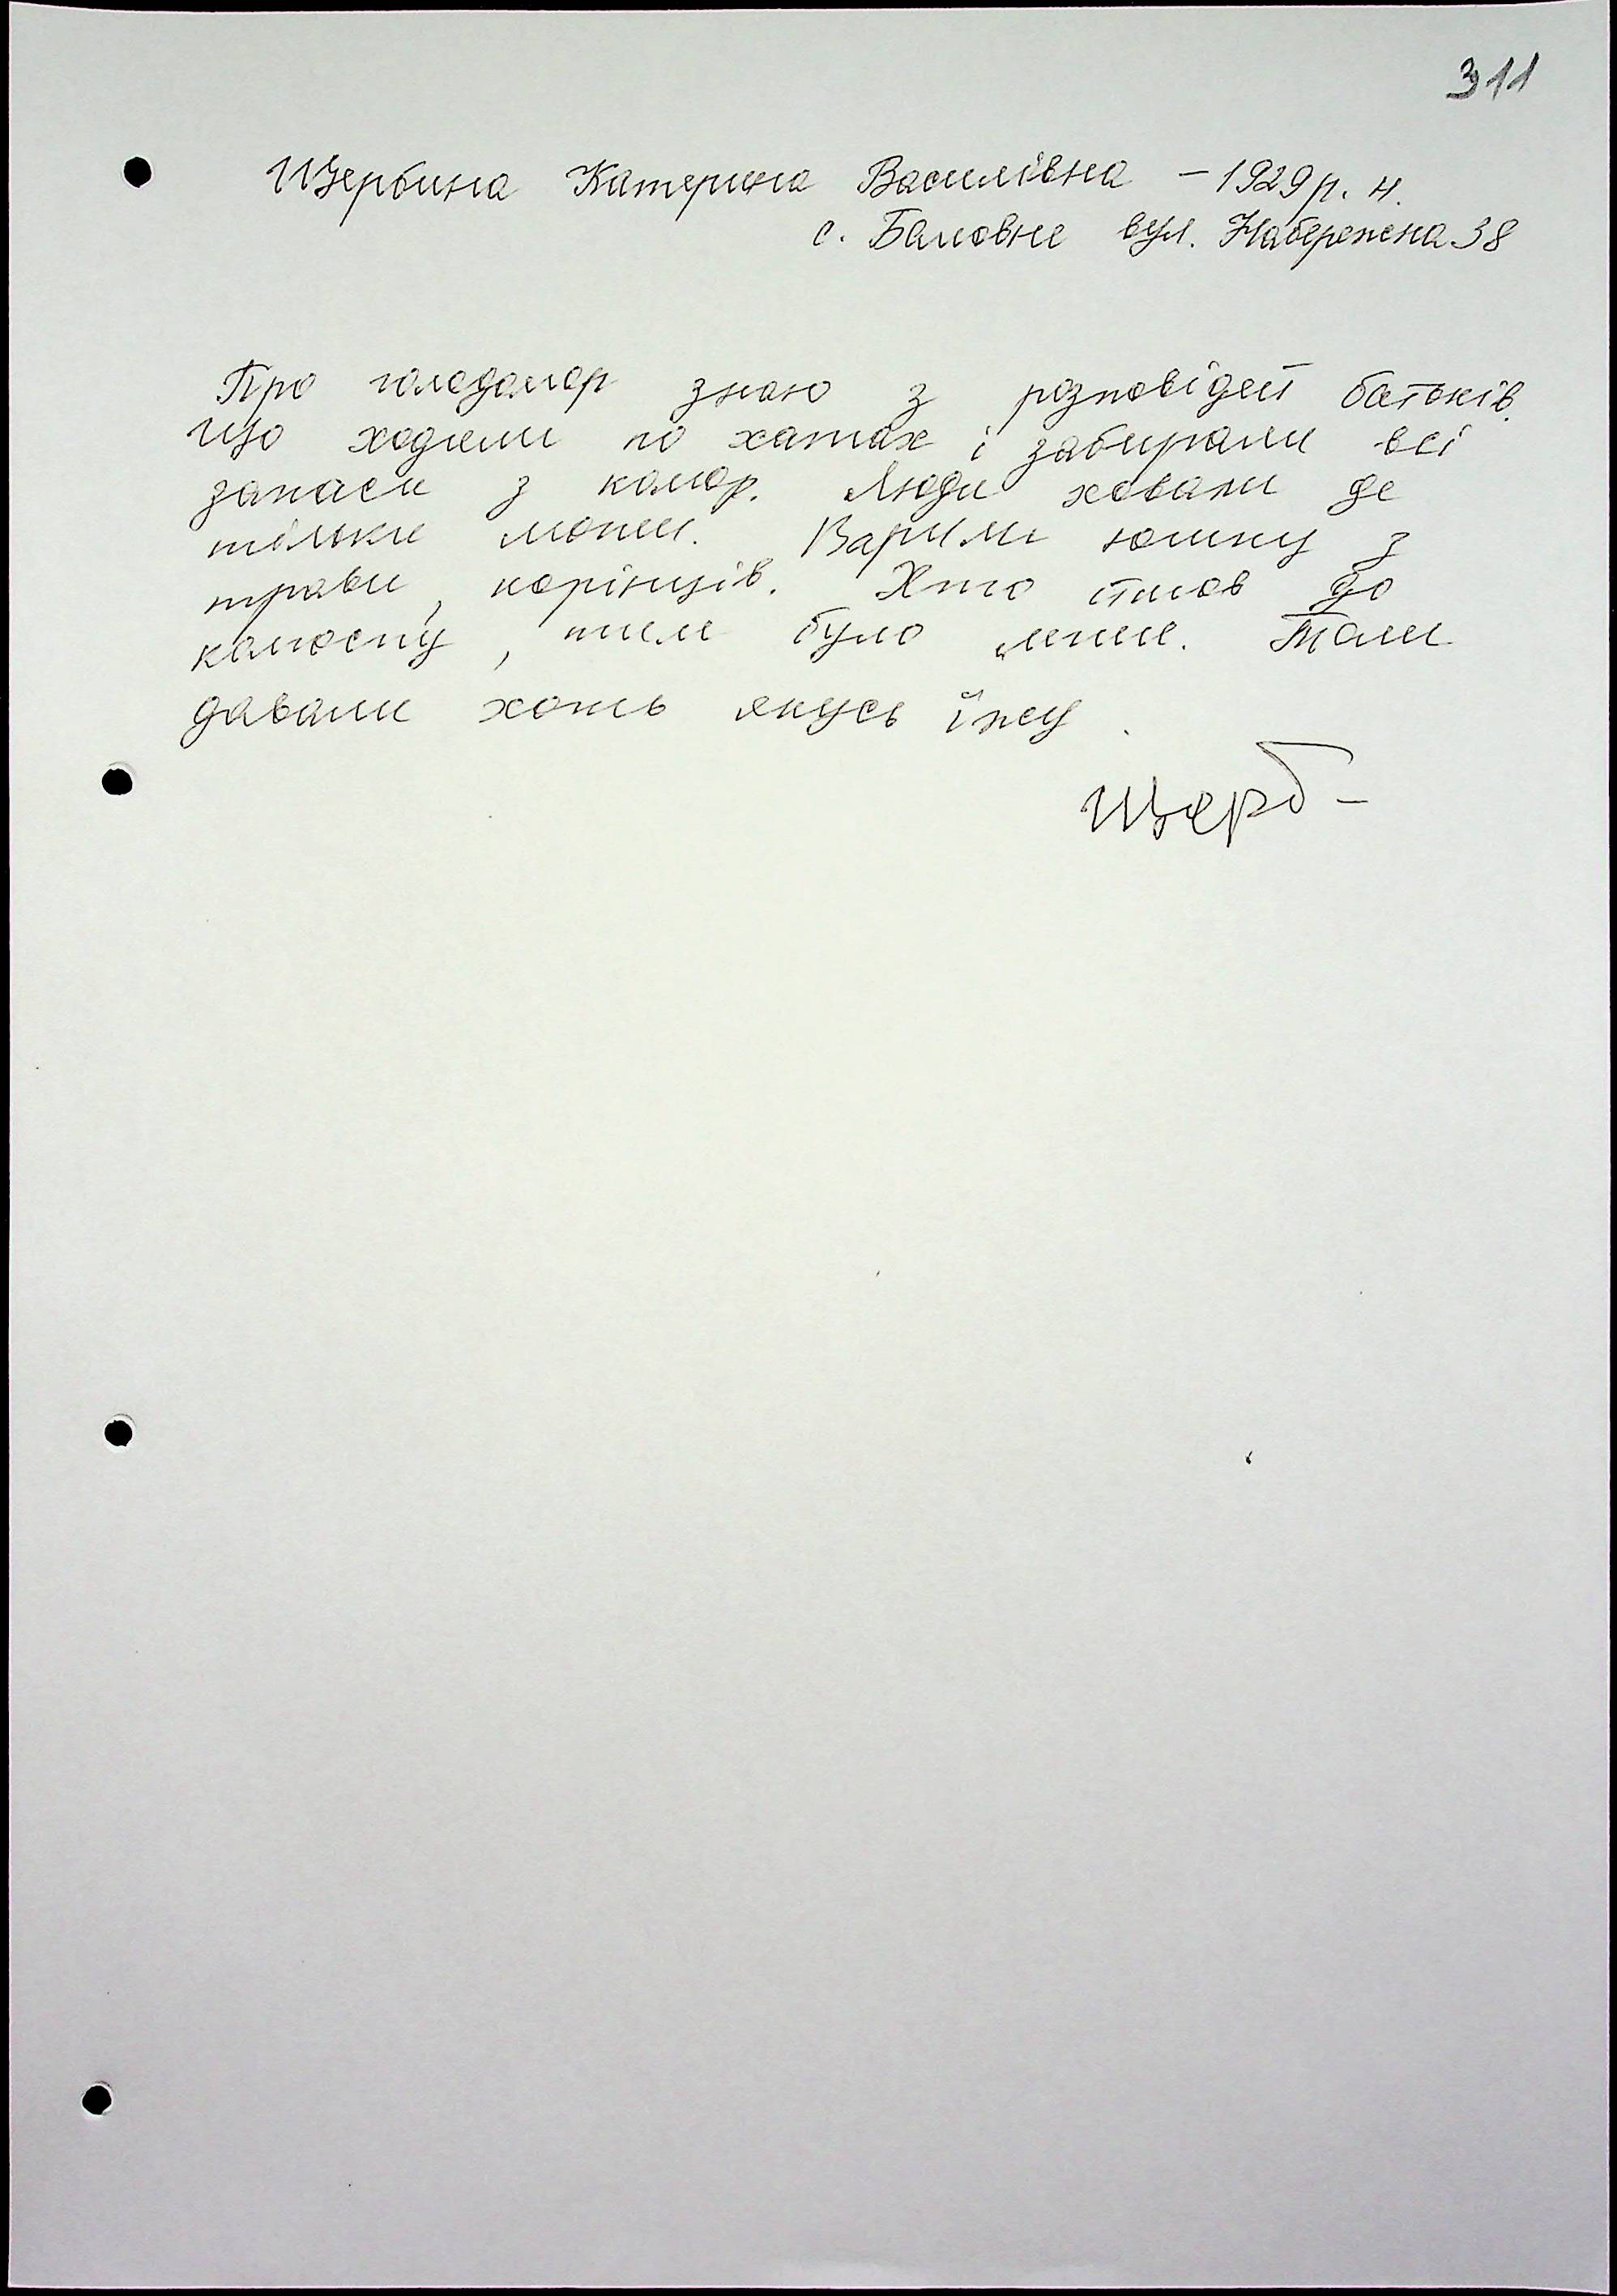 311
Щербина Катерина Василівна - 1929 р. н.
с. Баловне вул. Набережна 38
Про голодомор знаю з розповідей батьків.
Що ходили по хатах і забирали всі
запаси з комор. Люди ховали де
тільки могли. Варили юшку з
трави, корінців. Хто пішов до
колгоспу, тим було легше. Там
давали хоть якусь їжу.
Щерб-